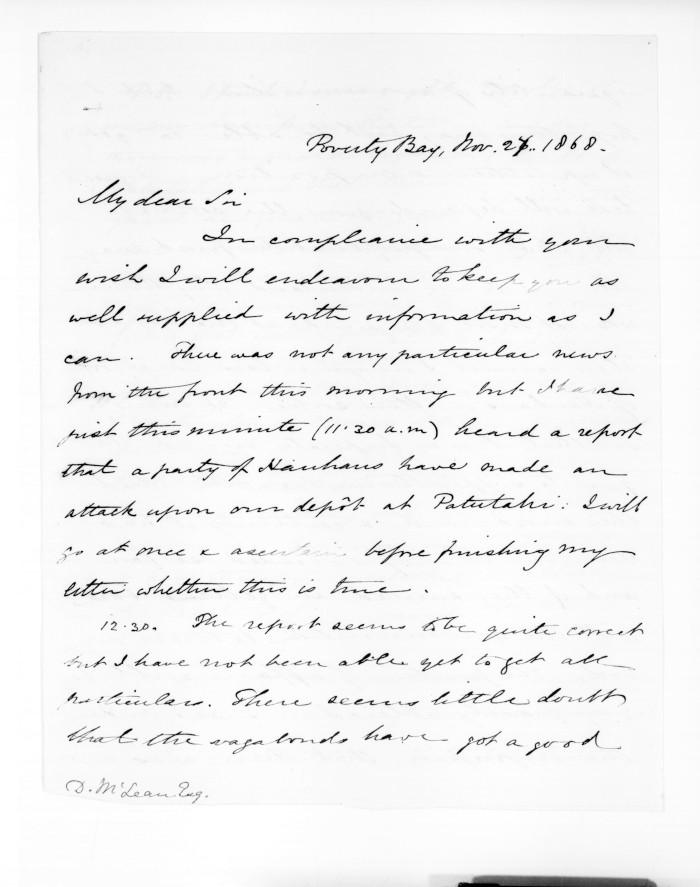 Poverty Bay, Nov. 27. 1868.
My dear Sir
In compliance with your
wish I will endeavour to keep you as
well supplied with information as I
can. There was not any particular news
from the front this morning but I have
just this minute (11.30 a.m) heard a report
that a party of Hauhaus have made an
attack upon our depôt at Patutahi: I will
go at once & ascertain before finishing my
letter whether this is true.
12.30. The report seems to be quite correct
but I have not been able yet to get all
particulars. There seems little doubt
that the vagabonds have got a good
D. McLean Esq.